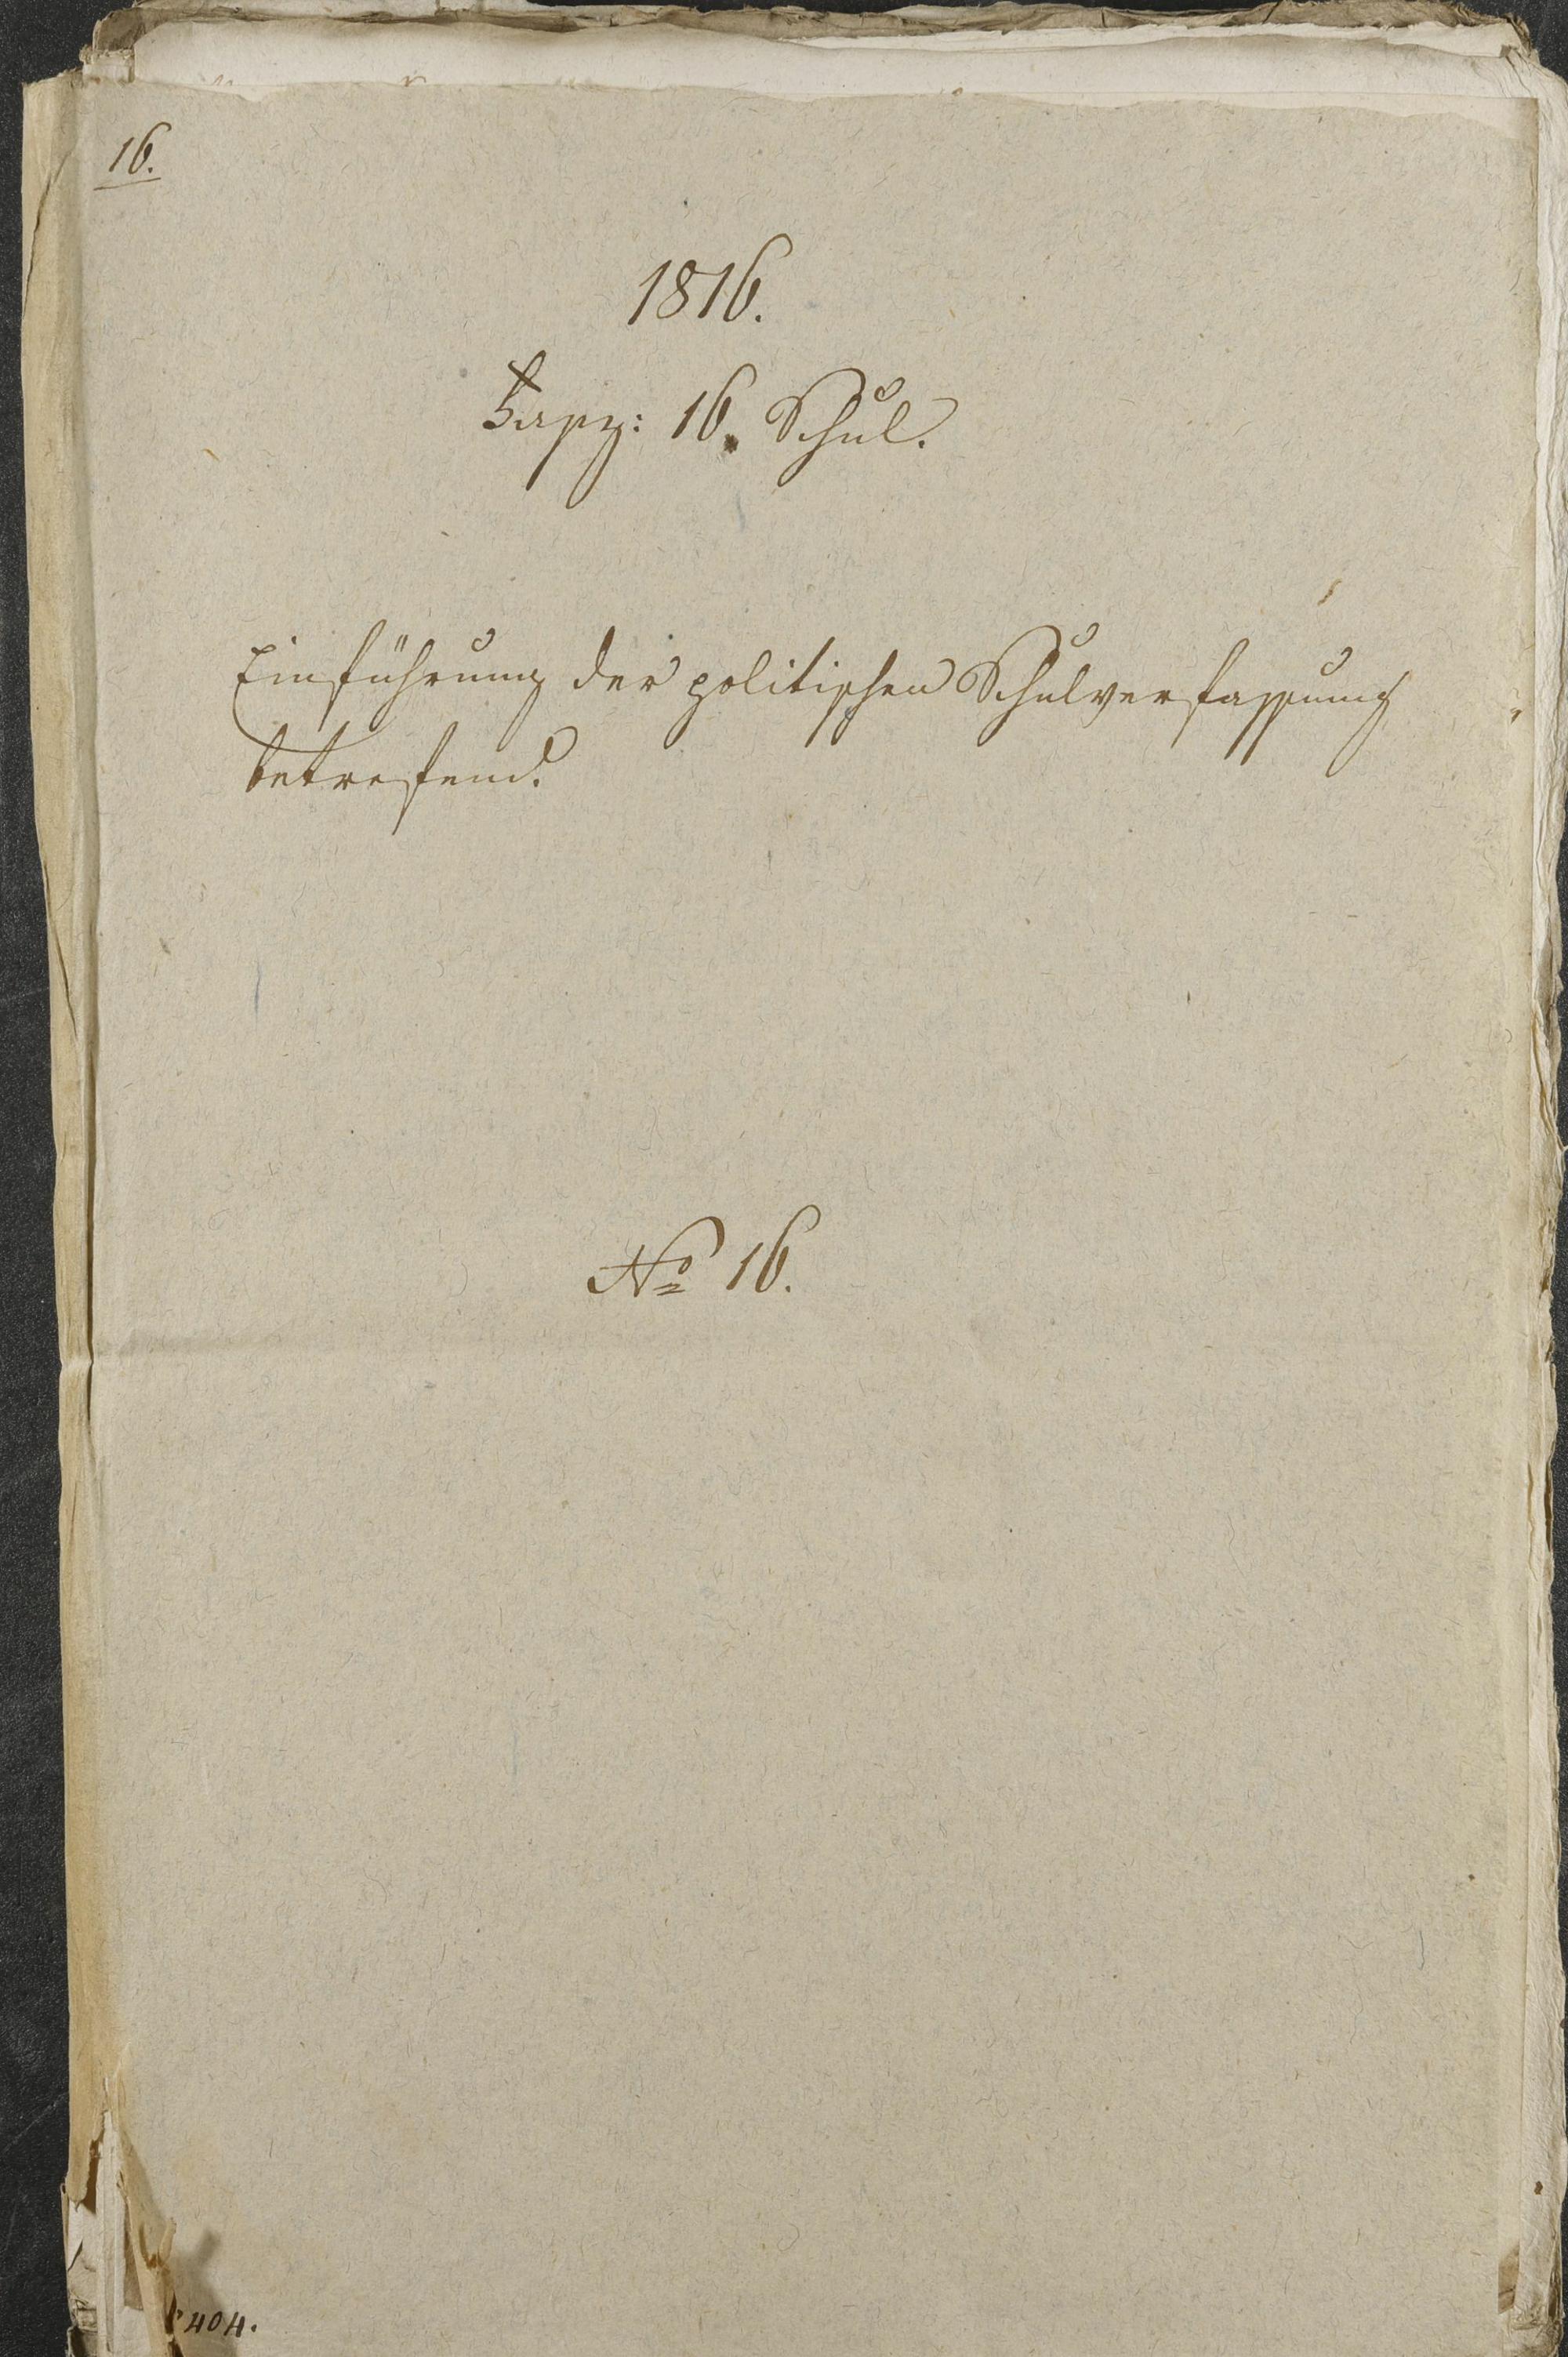 16.
1816.
Fasz: 16. Schul.
Einführung der politischen Schulverfassung
betrefend.
No 16.
404.